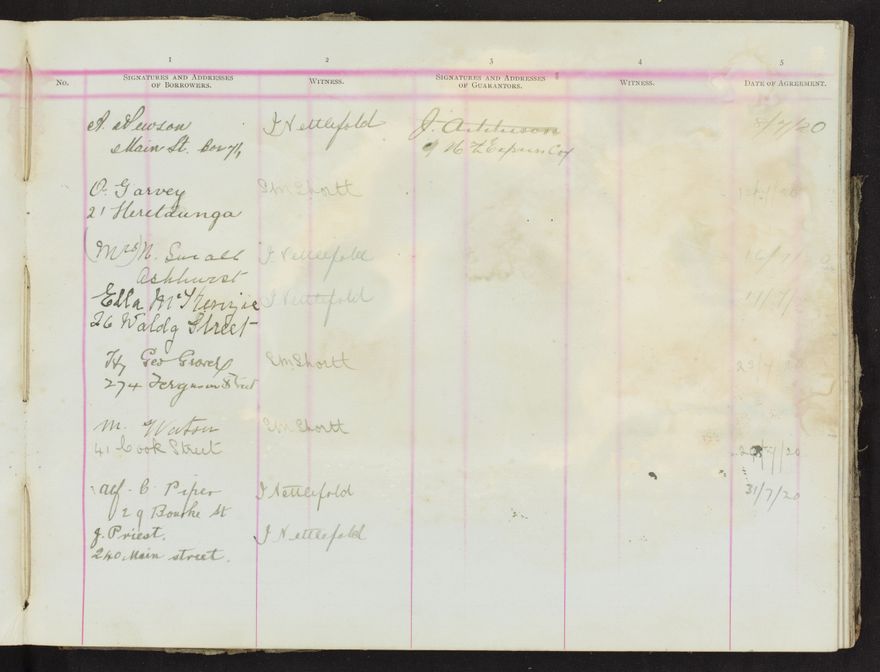 1 2 3 4 5
No. Signatures and Addresses of Borrowers. Witness. Signatures and Addresses of Guarantors. Witness. Date of Agreement.
A. Newson I Nettlefold J. Aitchison 8/7/20
Main St. Box 71, NZ Express Coy
O. Garvey EM Shortt
21 Heretaunga
(Mrs) N. Small I. Nettlefold 16/7/
Ashhurst
Ella McKenzie I Nettlefold
26 Waldg Street
Hy Geo Grover EM Shortt
274 Ferguson Street
M. Watson EM Shortt
41 Cook Street /20
Alf. C. Piper I Nettlefold 31/7/20
29 Bourke St
J. Priest. I Nettlefold
240 Main street.